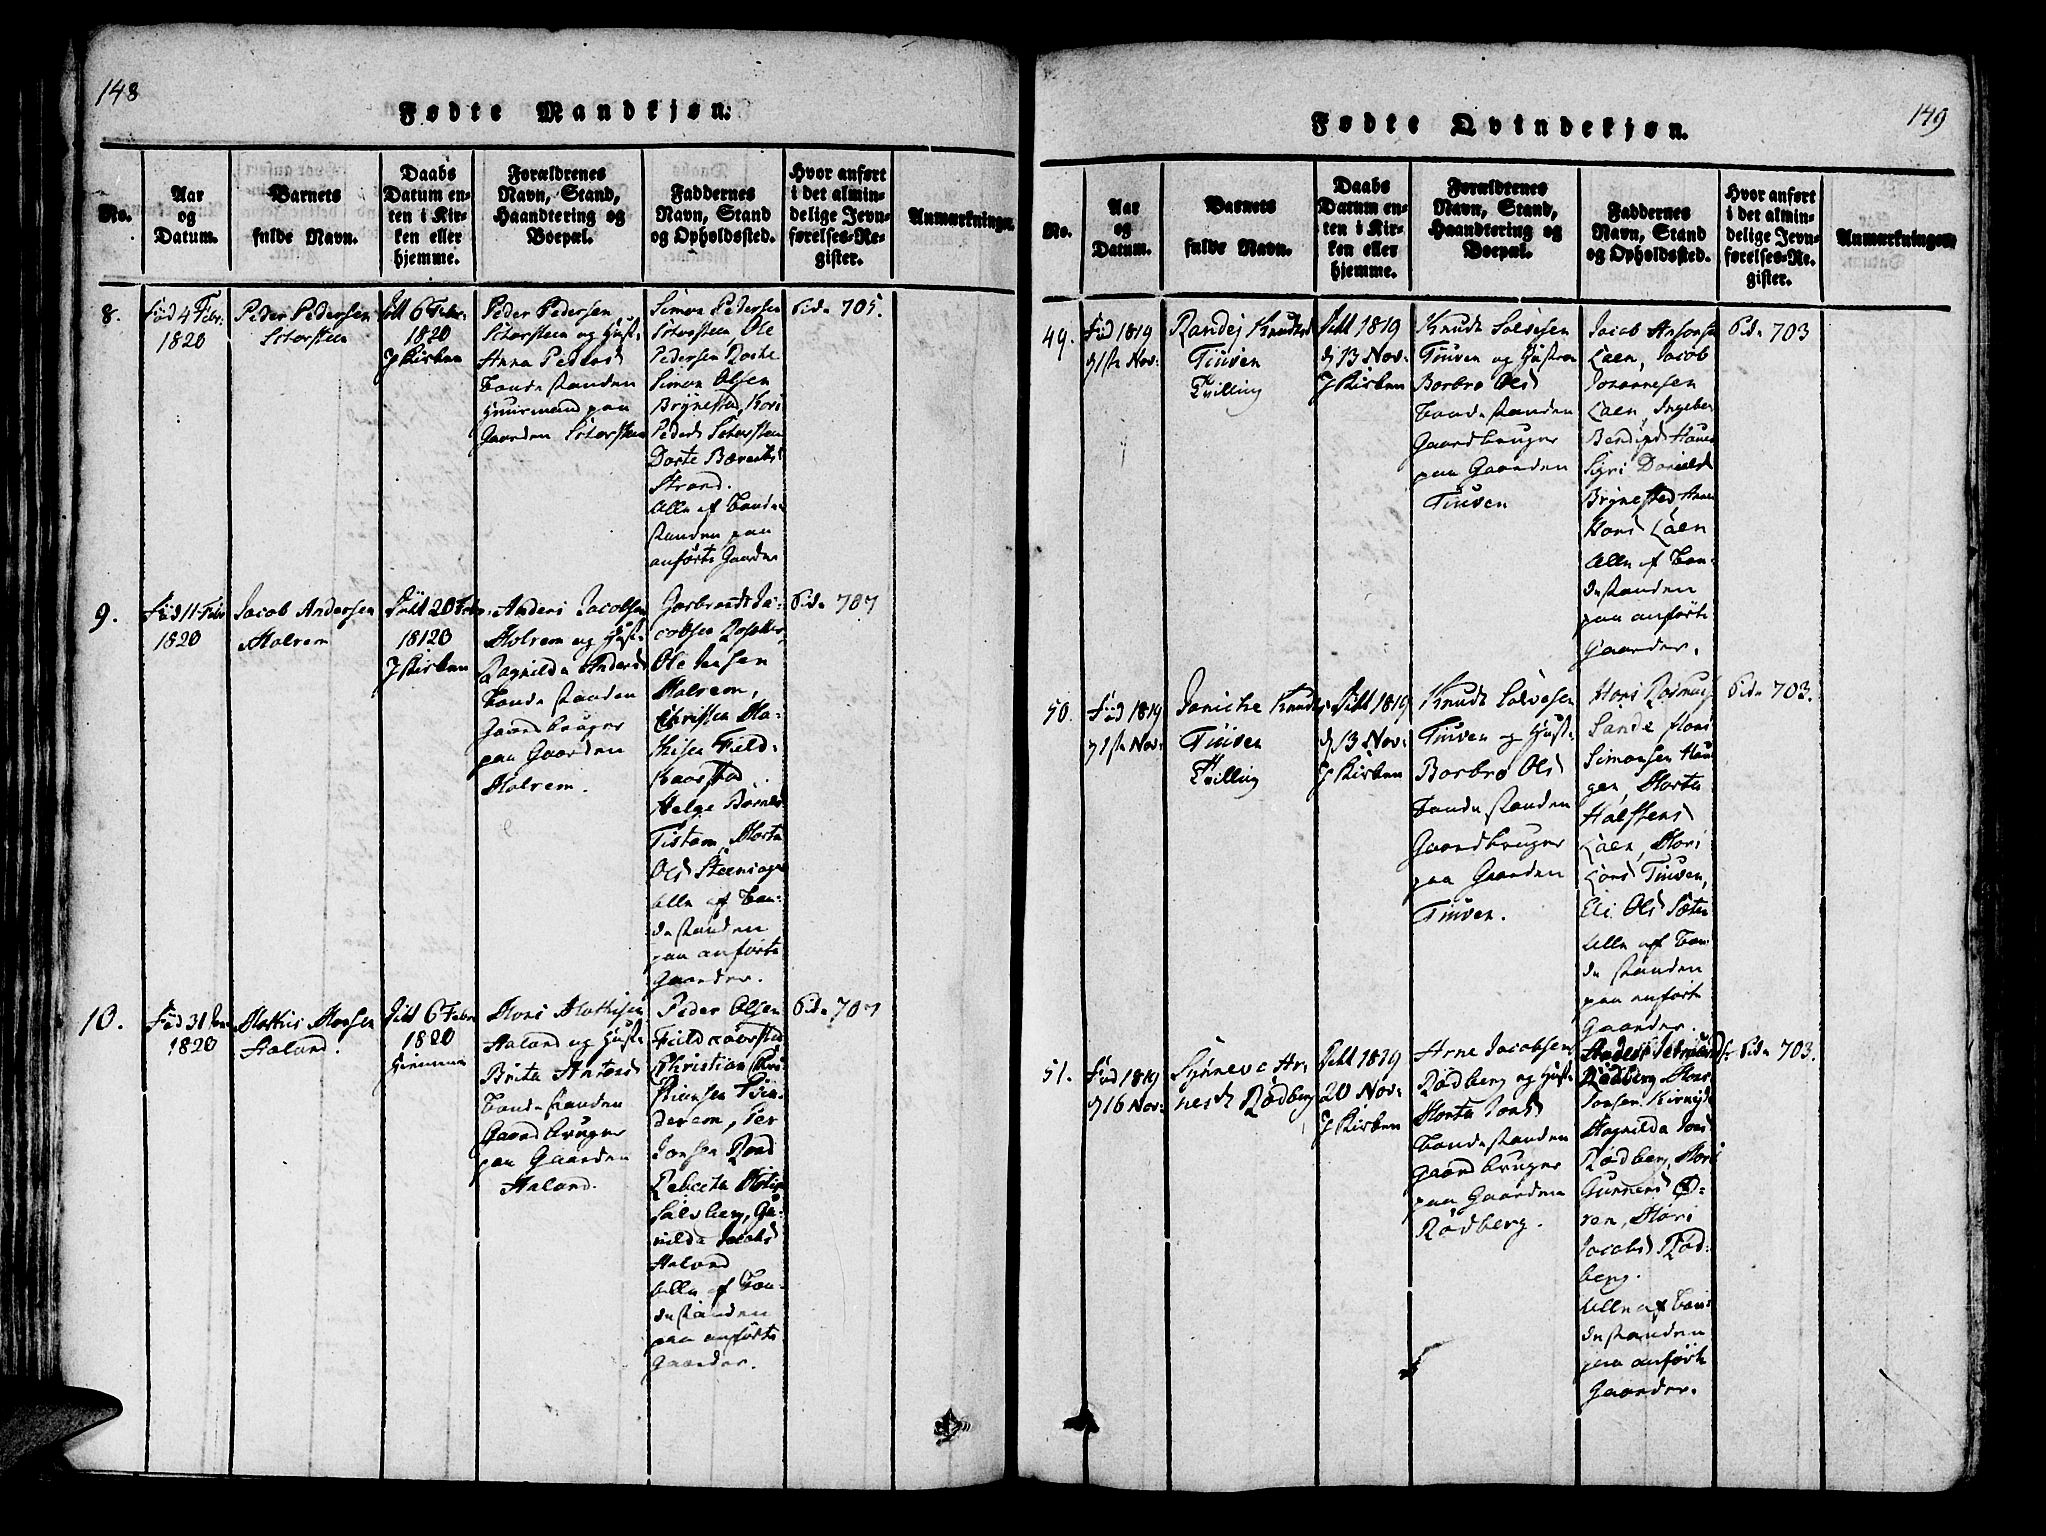 148
Fødte Mandkjøn.
No.
Aar
og
Datum.
Barnets
fulde Navn.
Daabs
Datum en-
ten i Kir-
ken eller
hjemme.
Forældrenes
Navn, Stand,
Haandtering og
Boepæl.
Faddernes
Navn, Stand
og Opholdssted.
Hvor anført
i det almin-
delige Jevn-
førelses-Re-
gister.
Anmærkninger.
8.
Fød 4 Febr:
1820
Peder Pedersen
Storsteen
6 Febr:
1820
J Kirken
Peder Pedersen
Storsteen og Hust:
Anna Peders
Bondestanden
Huusmand paa
Gaarden Storsteen
Simon Pedersen
Storsteen Ole
Pedersen
Simon Olsen
Brynestad, Kari
Peders Storsteen
Dorte
Strand.
Alle af Bonde
standen paa
anførte Gaarder
Side 705.
9.
Fød 11 Febr
1820
Jacob Andersen
Molrem
20 Febr:
1820
J Kirken
Anders Jacobsen
Molrem og Hust:
Ragnilda Anders
Bondestanden
Gaardbruger
paa Gaarden
Molrem.
Garbrandt Ja-
cobsen
Ole Jensen
Molrem,
Christen Ma-
thisen Field-
Kaarstad
Helge
Tistam, Marta
Ols
Alle af Bon-
destanden
paa anførte
Gaarder.
Side 707
10.
Fød 31 Jan
1820
Mathis Monsen
Aaland.
6 Febr
1820
Hiemme
Mons Mathisen
Aaland og Hust:
Brita
Bondestanden
Gaardbruger
paa Gaarden
Aaland.
Peder Olsen
Field
Christian Chri-
stiansen
derem, Per
Jonsen
Rebecka
Solsberg, Gu-
nilda Jacobs
Aaland
Alle af Bon-
destanden
paa anførte
Gaarder.
Side 707
149
Fødte Qvindekjøn.
No.
Aar
og
Datum.
Barnets
fulde Navn.
Daabs
Datum en-
ten i Kir-
ken eller
hjemme.
Forældrenes
Navn, Stand,
Haandtering og
Boepæl.
Faddernes
Navn, Stand
og Opholdssted.
Hvor anført
i det almin-
delige Jevn-
førelses-Re-
gister.
Anmærkninger.
49.
Fød 1819
1ste Nov:
Randej Knuds
Tinven
Tvilling
1819
d 13 Nov:
J Kirken
Knud Solvesen
Tinven og Hustroe
Barbro Ols
Bondestanden
Gaardbruger
paa Gaarden
Tinven
Jacob
Loen, Jacob
Johannesen
Loen, Ingebor
Haue
Siri Daniels
Brynestad Anne
Hans Loen
Alle af Bon-
destanden
paa anførte
Gaarder.
Side 703
50.
Fød 1819
1ste Nov:
Janiche Knuds
Tinven
Tvilling
1819
d 13 Nov:
J Kirken
Knud Solvesen
Tinven og Hust:
Barbro Ols
Bondestanden
Gaardbruger
paa Gaarden
Tinven.
Hans Rasmus
Sande
Simonsen Hau-
gen, Marta
Halstens
Loen, Mari
Lars Tinven,
Eli Ols Sæten
Alle af Bon-
destanden
paa anførte
Gaarder.
Side 703.
51.
Fød 1819
d 16 Nov:
Synneve Ar-
nesd Rødberg
1819
20 Nov:
J Kirken
Arne Jacobsen
Rødberg og Hust:
Marta Jons
Bondestanden
Gaardbruger
paa Gaarden
Rødberg.
Anders
Rødberg, Mons
Jonsen
Magnilda Jons
Rødberg, Mari
Gunners
ren, Mari
Jacobs Rød-
berg.
Alle af Bon-
destanden
paa anførte
Gaarder.
Side 703.